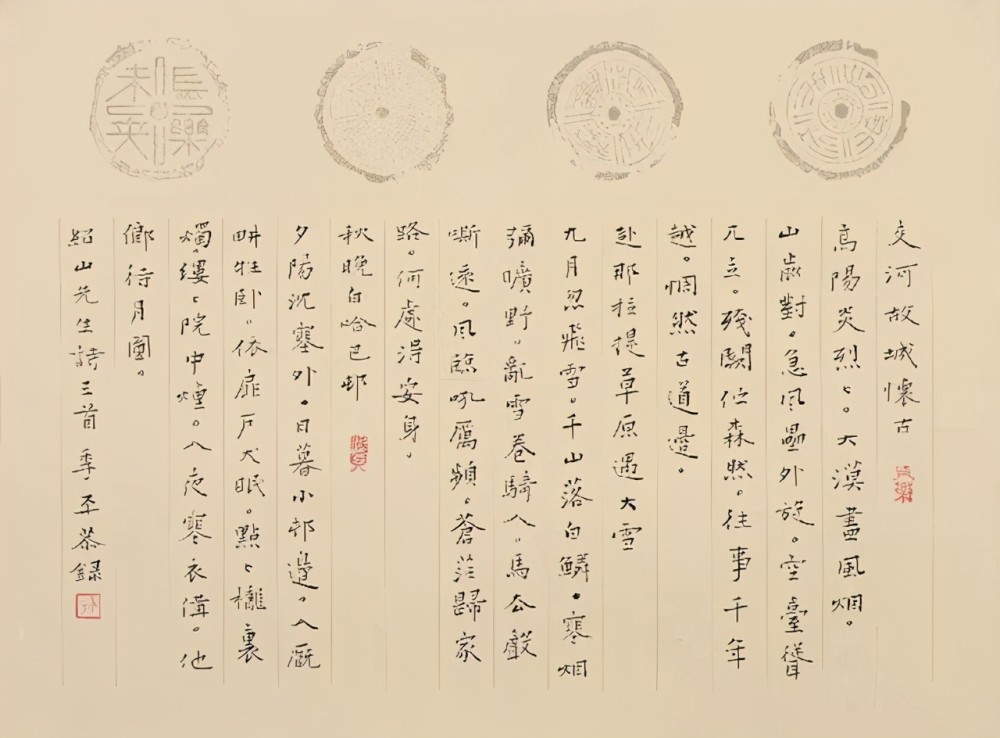 長樂未央
交河故城懷古
高陽炎烈〻。大漠盡風烟。
山對。急風壘外旋。空臺聳
兀立。殘闕位森然。往事千年
越。惘然古道邊。
赴那拉提草原遇大雪
九月忽飛雪。千山落白鱗。寒烟
彌曠野。亂雪卷騎人。馬去聲
嘶遠。風臨吼厲頻。蒼茫歸家
路。何處得安身。
秋晚白哈巴邨
夕陽沉塞外。日暮小邨邊。入厩
耕牲卧。依扉戶犬眠。點〻櫳裏
燭。縷〻院中煙。入夜寒衣備。他
鄉待月圓。
紹山先生詩三首 季丕恭録